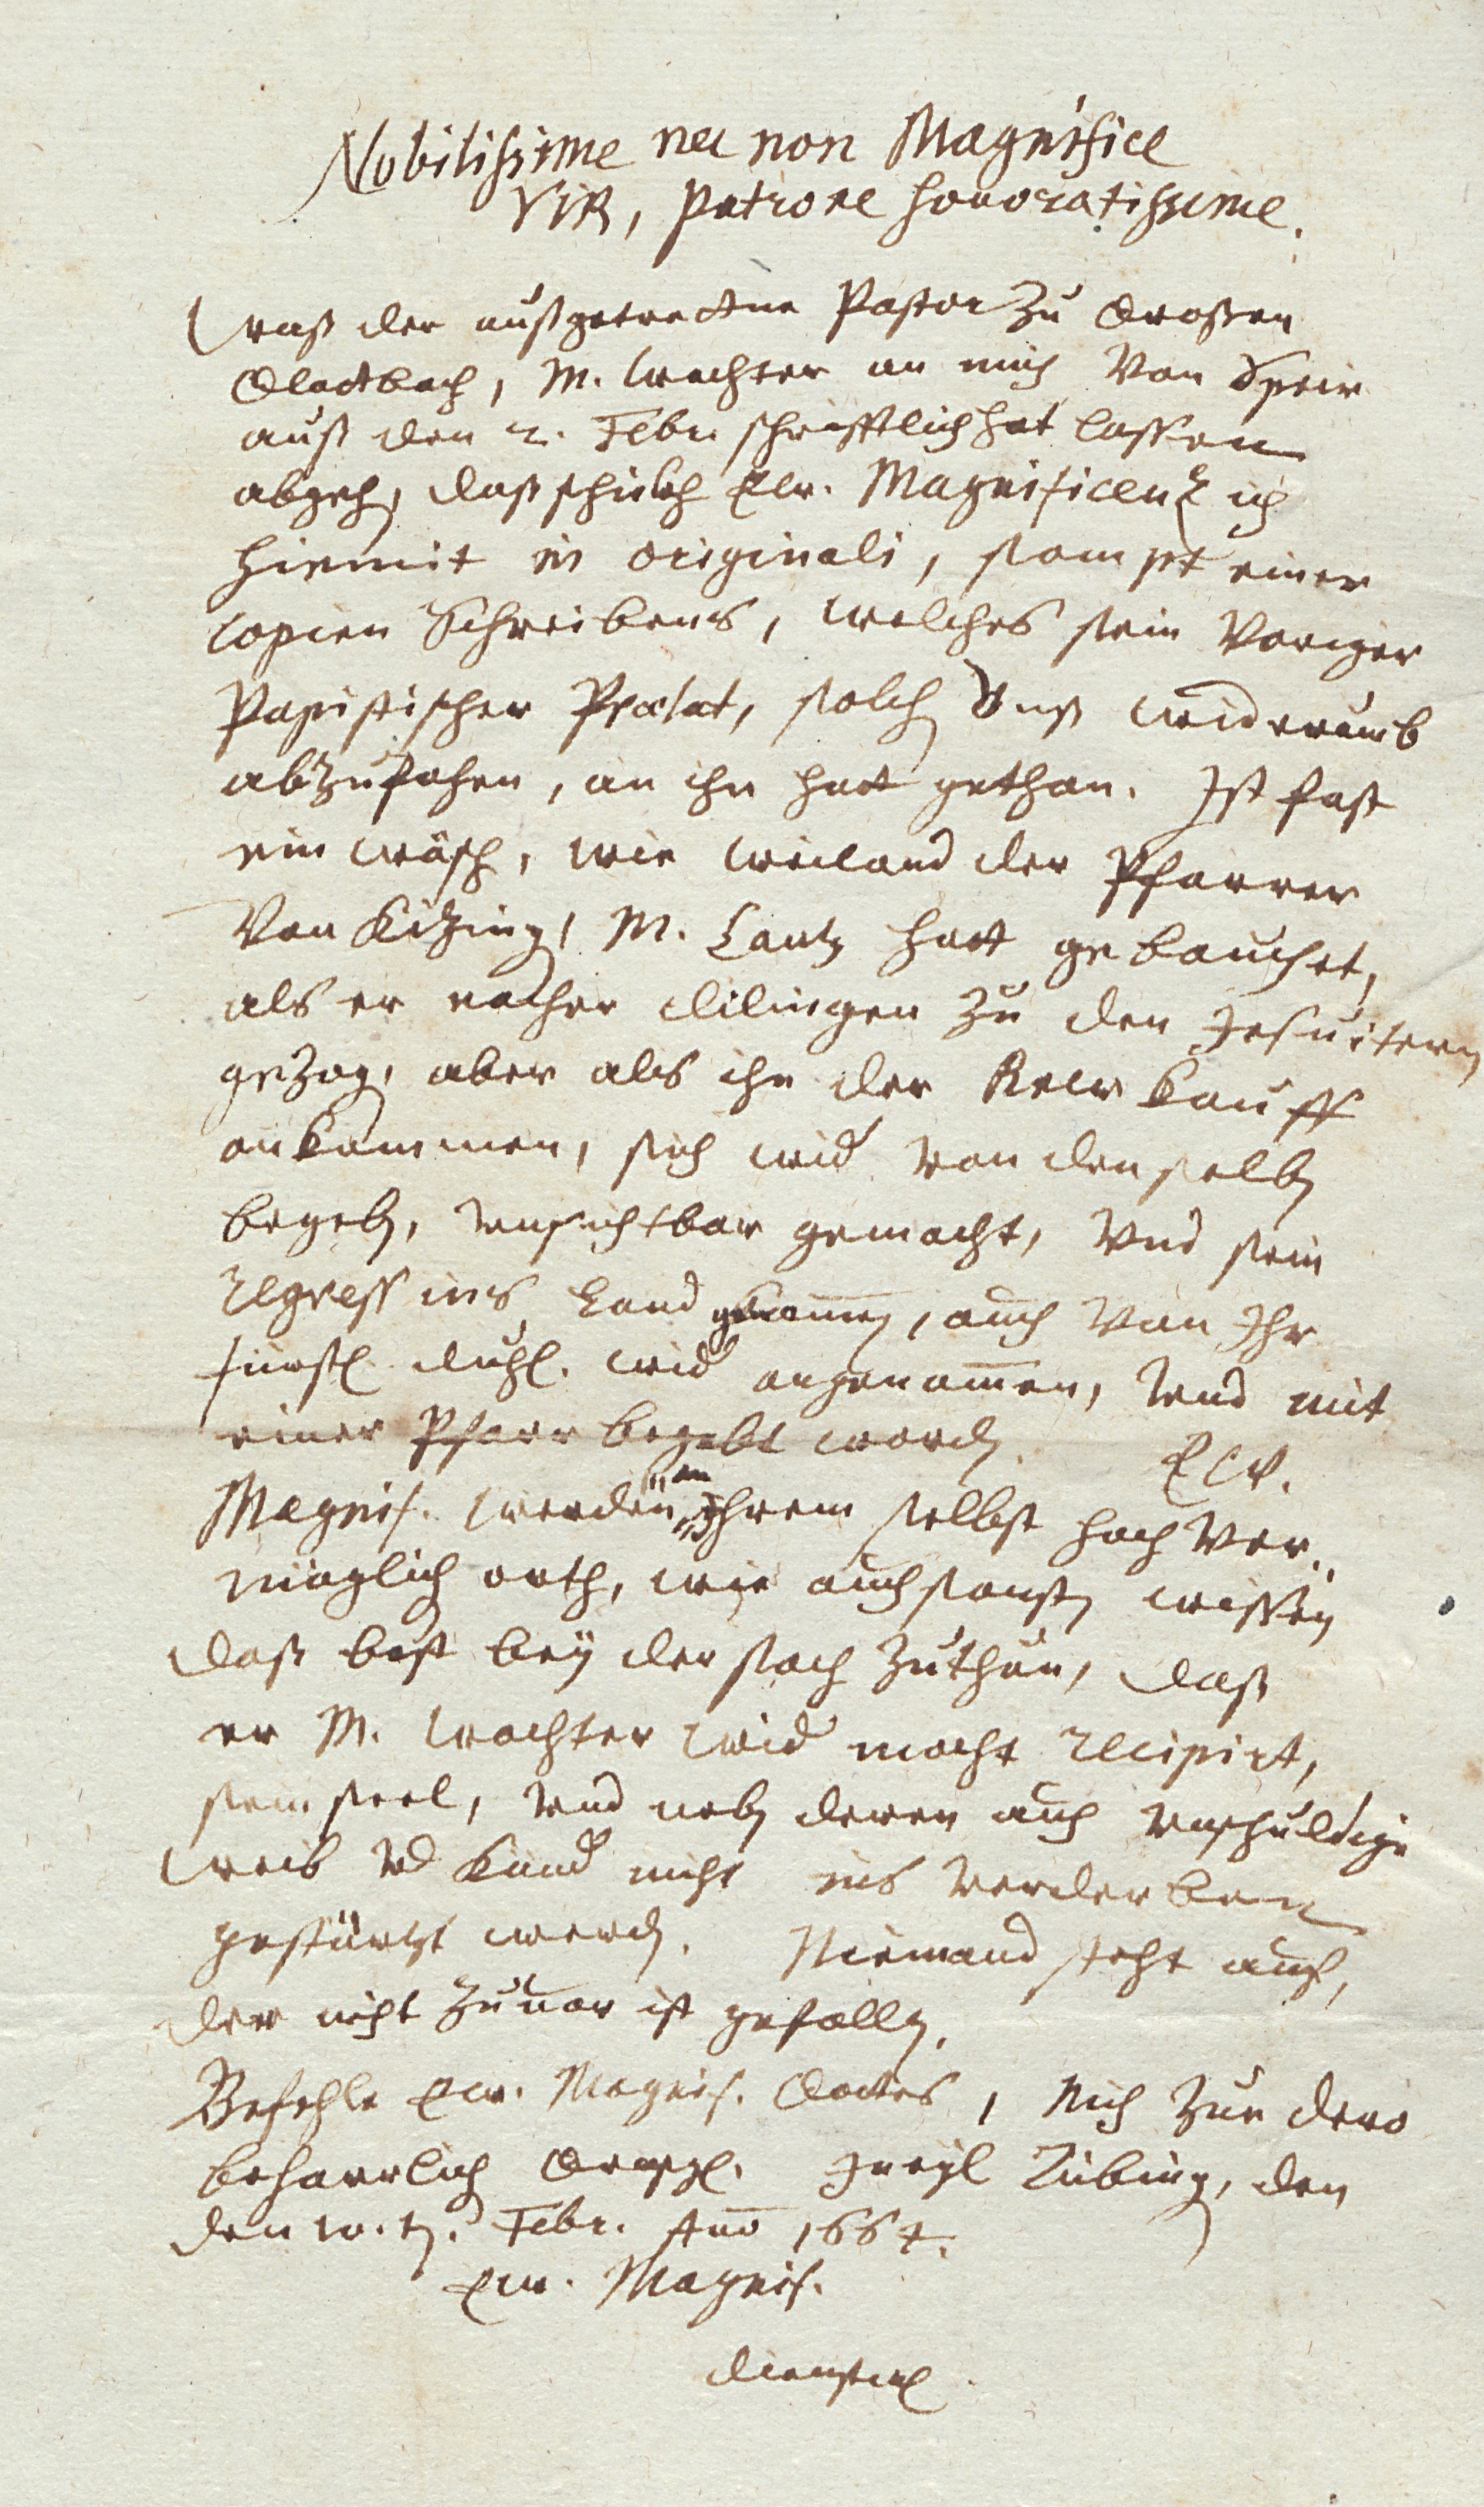 Nobilissime nec non Magnifice
VIR, Patrone honoratissime.
Waß der außgetrettne Pastor Zu Großen
Glattbach, M. Wachter an mich Von Speir
auß den 2. Febr. schrifftlich hat lassen
abgeh, daß schickh Ew. Magnificenz ich
hiemit in originali, sampt einer
copien Schreibens, welches sein Voriger
Papistischer Prælat, solch Unß widerumb
abzusahen, an ihn hatt gethan. Ist fast
ein wäsch, wie weiland der Pfarrer
Von Kitzing, M. Lantz hatt gebauchet,
als er nacher dilingen Zu den Jesuitern
gezog, aber als ihn der Rew kauff
ankommen, sich wid von denselb
begeb, unsichtbar gemacht, Und sein
regress ins Land genomen, auch Von Ihr
fürstl. durchl. wid angenommen, Und mit
einer Pfarr begabt word. Ew.
Magnif. werden an ihrem selbst hoch Ver-
möglich orth, wie auch sonst wissen
daß best bey der sach Zuthun, daß
er M. Wachter wid mocht recipirt,
sein seel, Und neb deren auch unschuldige
weib Vd Kind nicht ins Verderben
gestürtzt werd. Niemand steht auf,
der nicht Zuuor ist gefall.
Befehle Ew. Magnif. Gottes, Mich Zue dero
beharrlich Tübing, den
den Febr. Ano 1664.
Ew. Magnif.
dienstwl.